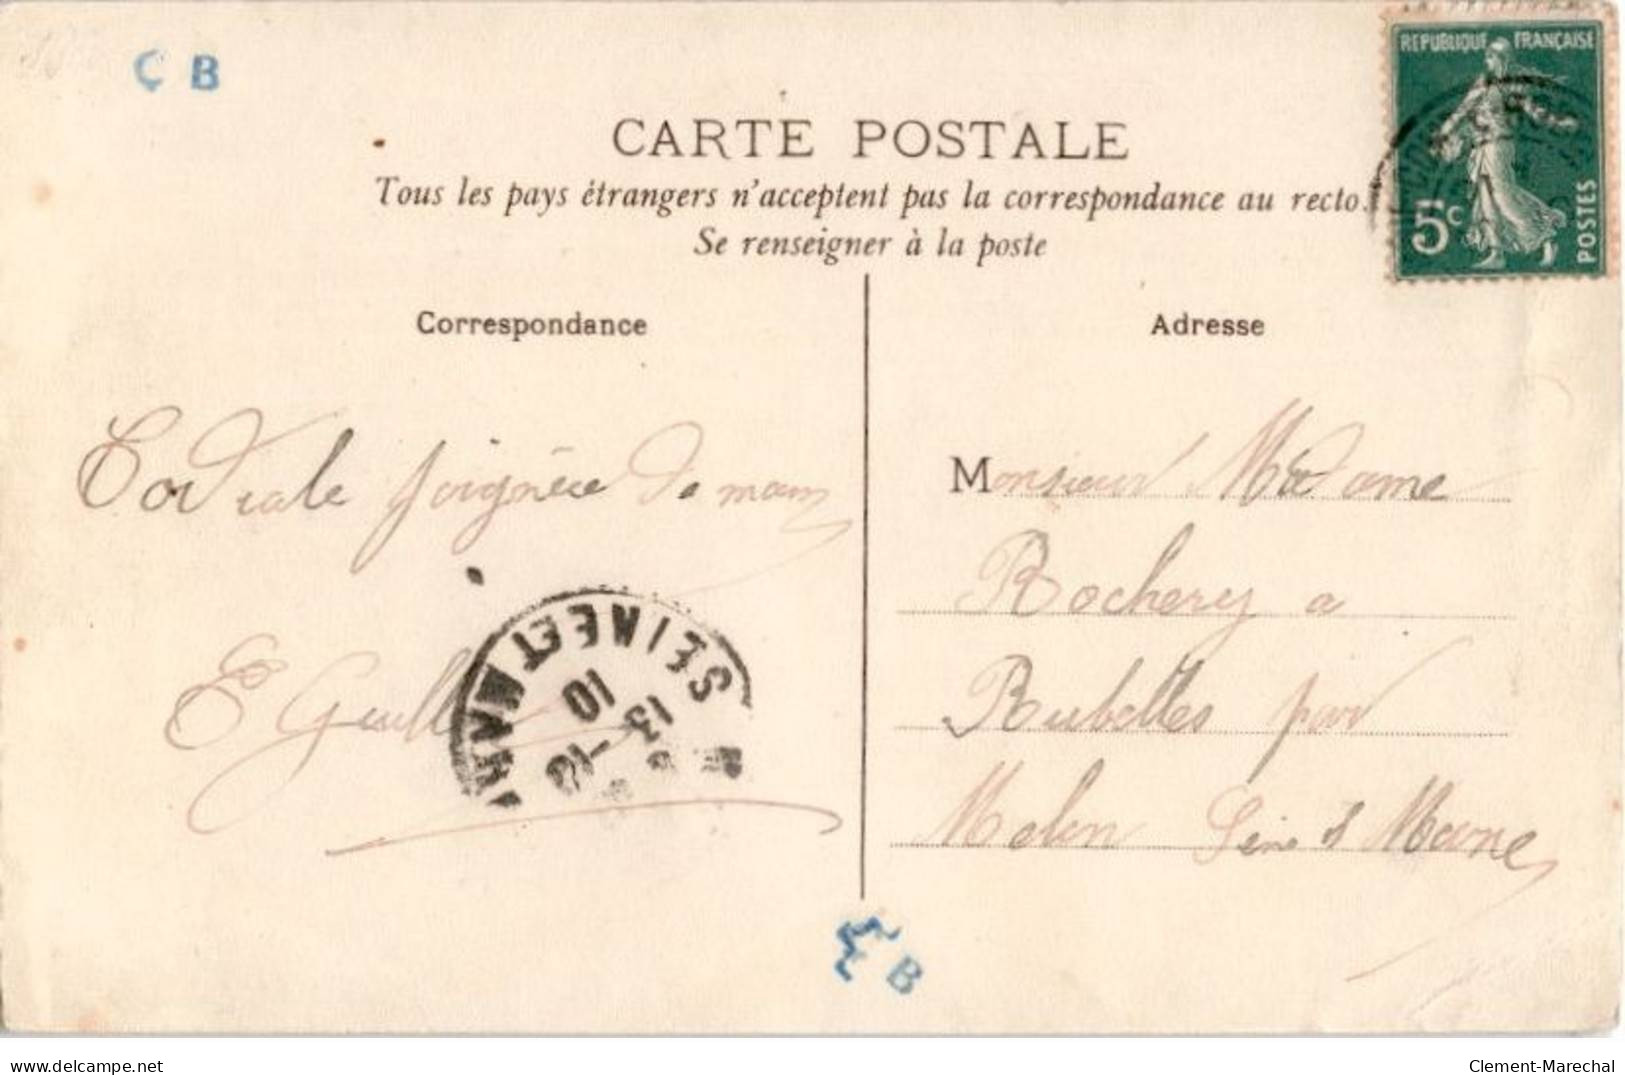 C B
REPUBLIQUE FRANÇAISE
5c
POSTES
CARTE POSTALE
Tous les pays étrangers n'acceptent pas la correspondance au recto.
Se renseigner à la poste
Correspondance
Adresse
Cordiale poignée de main
E Guill
SEINE ET MARNE
10
13 -10
Monsieur Madame
Rochery a
Rubelles par
Melun Seine & Marne
B
www.delcampe.net
Clement-Marechal